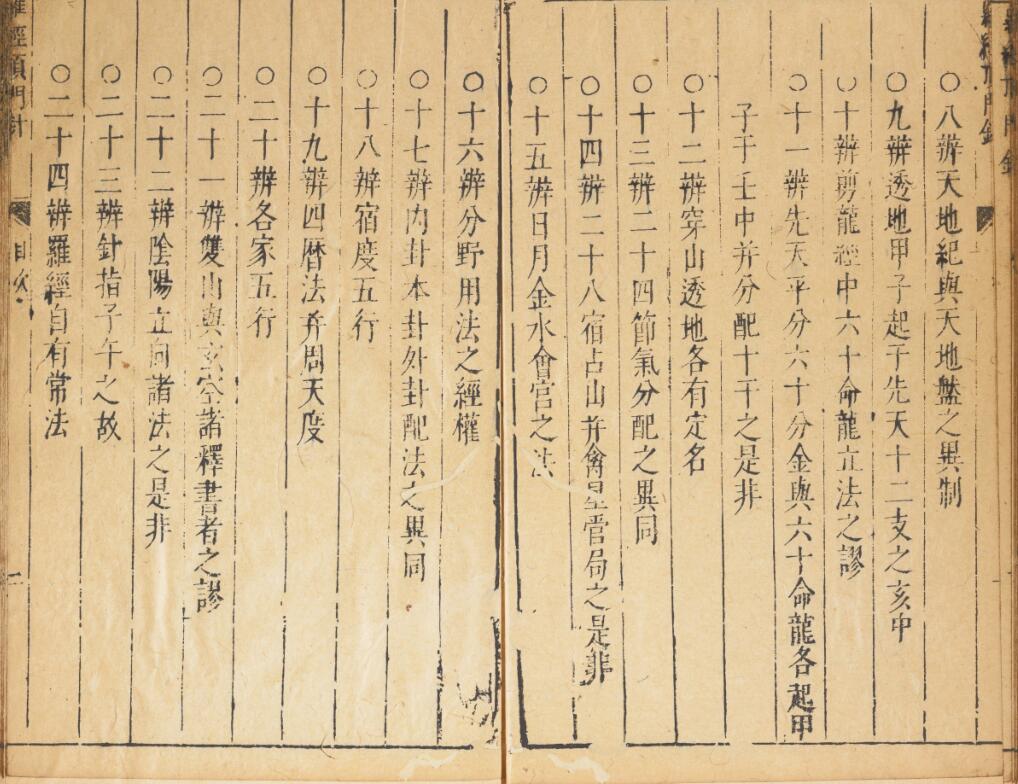 ○八辨天地紀與天地盤之異制
○九辨透地甲子起于先天十二支之亥中
○十辨剪龍經中六十命龍立法之謬
○十一辨先天平分六十分金與六十命龍各起甲
子于壬中并分配十干之是非
○十二辨穿山透地各有定名
○十三辨二十四節氣分配之異同
○十四辨二十八宿占山并禽星管局之是非
○十五辨日月金水會宫之法
○十六辨分野用法之經權
○十七辨內卦本卦外卦配法之異同
○十八辨宿度五行
○十九辨四曆法并周天度
○二十辨各家五行
○二十一辨雙山與玄空諸釋書者之謬
○二十二辨陰陽立向諸法之是非
○二十三辨針指子午之故
○二十四辨羅經自有常法
羅經頂門針
目次
二